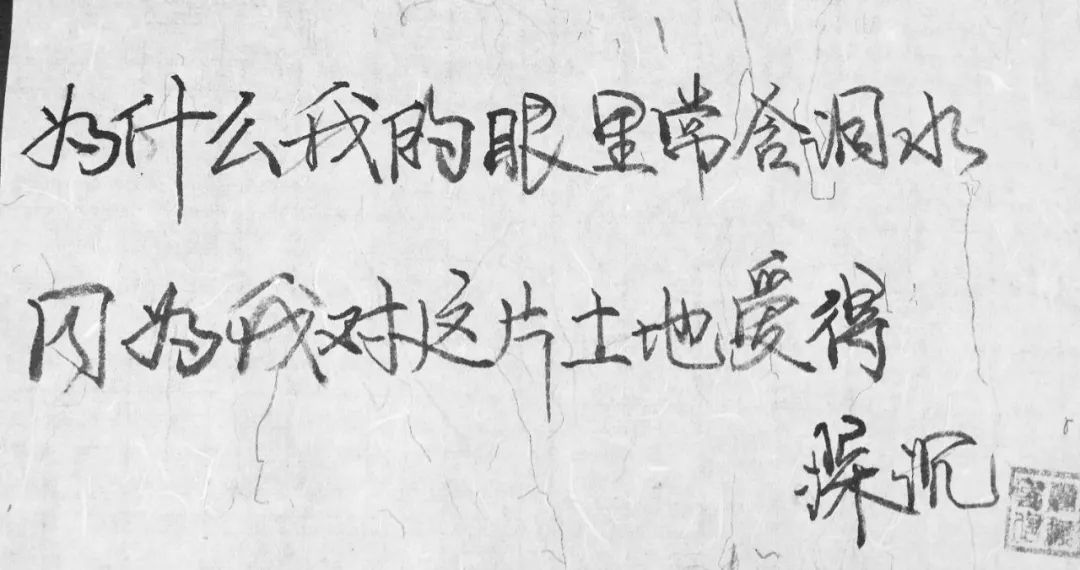 为什么我的眼里常含泪水
因为我对这片土地爱得
深沉